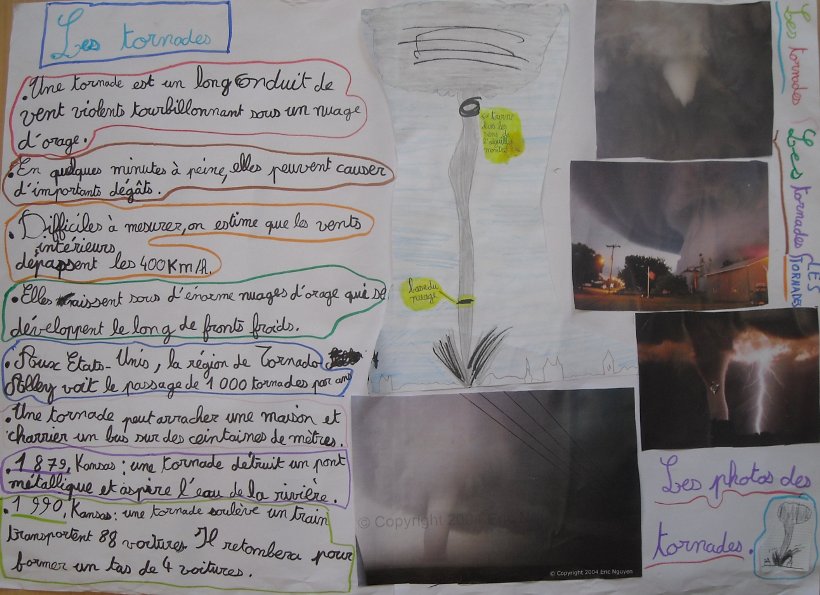 Les tornades
.Une tornade est un long conduit de
vent violents tourbillonnant sous un nuage
d'orage.
.En quelques minutes à peine, elles peuvent causer
d'importants dégâts.
.Difficiles à mesurer, on estime que les vents
intérieurs
dépassent les 400Km/h.
.Elles naissent sous d'énorme nuages d'orage qui se
développent le long de fronts froids.
.Aux Etats-Unis, la région de Tornado
Alley voit le passage de 1 000 tornades par an
.Une tornade peut arracher une maison et
charrier un bus sur des ceintaines de mètres.
.1 879, Kansas: une tornade détruit un pont
métallique et aspire l'eau de la rivière.
.1 990, Kansas: une tornade soulève un train
transportent 88 voitures. Il retombera pour
former un tas de 4 voitures.
sens
base du
nuage
© Copyright 2004 Eric
© Copyright 2004 Eric Nguyen
Les tornades
Les tornades
LES TORNADES
Les photos des
tornades.